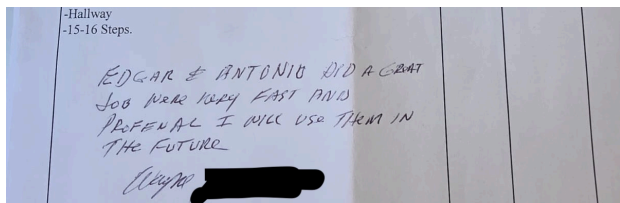 -Hallway
-15-16 Steps.
EDGAR & ANTONIO DID A GREAT
JOB WERE VERY FAST AND
PROFENAL I WILL USE THEM IN
THE FUTURE
Wayne